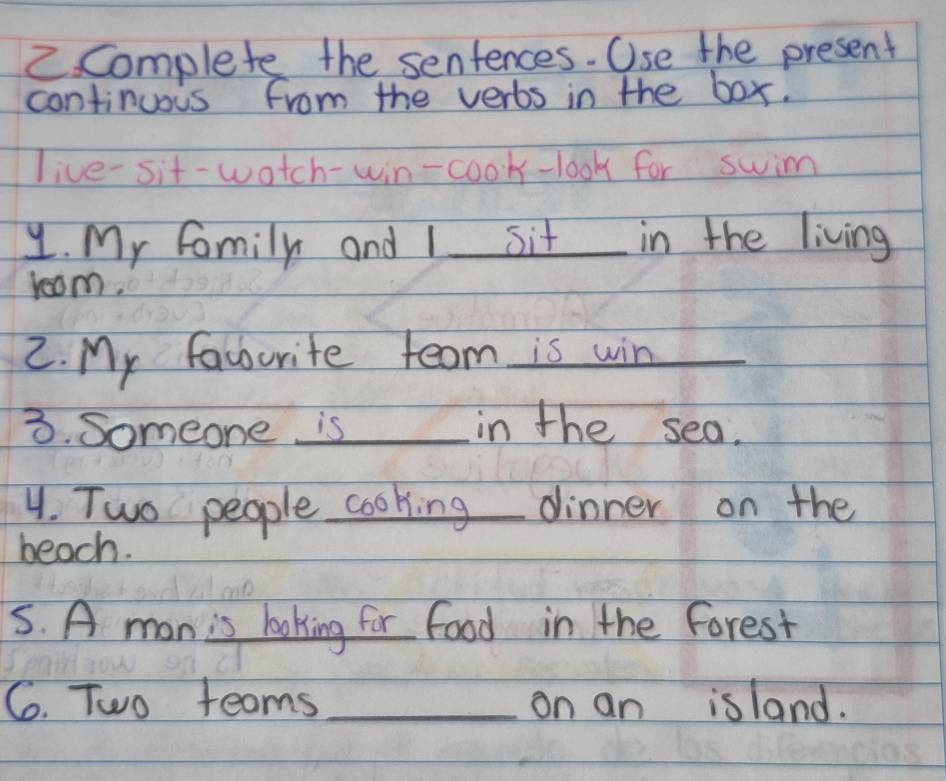 2. Complete the sentences. Use the present
continuous from the verbs in the box.
live-sit-watch-win-cook-look for swim
1. My family and I sit in the living
room.
2. My favourite team is win
3. Someone is in the sea.
4. Two people cooking dinner on the
beach.
5. A man is looking for food in the forest
6. Two teams on an island.